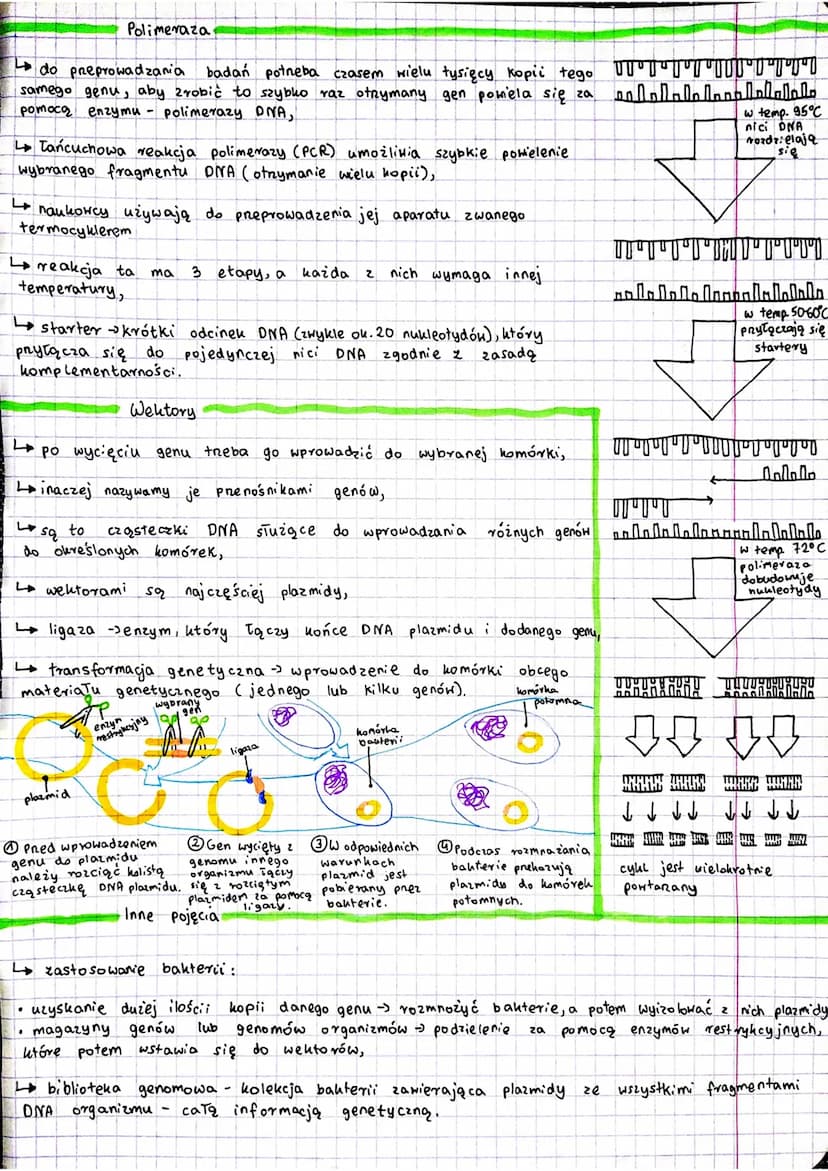 Polimeraza
↳ do przeprowadzania badań potrzeba czasem wielu tysięcy kopii tego
samego genu, aby zrobić to szybko raz otrzymany gen powiela się za
pomocą enzymu - polimerazy DNA,
↳ Łańcuchowa reakcja polimerazy (PCR) umożliwia szybkie powielenie
wybranego fragmentu DNA (otrzymanie wielu kopii),
↳ naukowcy używają do przeprowadzenia jej aparatu zwanego
termocyklerem
↳ reakcja ta ma 3 etapy, a każda z nich wymaga innej
temperatury,
↳ starter → krótki odcinek DNA (zwykle ok. 20 nukleotydów), który
przyłącza się do pojedynczej nici DNA zgodnie z zasadą
komplementarności.
w temp. 95°C
nici DNA
rozdzielają
się
w temp 50-60°C
przyłączają się
startery
w temp 72°C
polimeraza
dobudowuje
nukleotydy
cykl jest wielokrotnie
powtarzany
Wektory
↳ po wycięciu genu trzeba go wprowadzić do wybranej komórki,
↳ inaczej nazywamy je przenośnikami genów,
↳ są to cząsteczki DNA służące do wprowadzania różnych genów
do określonych komórek,
↳ wektorami są najczęściej plazmidy,
↳ ligaza → enzym, który łączy końce DNA plazmidu i dodanego genu,
↳ transformacja genetyczna → wprowadzenie do komórki obcego
materiału genetycznego (jednego lub kilku genów).
enzym
restrykcyjny
wybrany
gen
ligaza
komórka
bakterii
komórka
potomna
plazmid
① Przed wprowadzeniem
genu do plazmidu
należy rozciąć kolistą
cząsteczkę DNA plazmidu.
② Gen wycięty z
genomu innego
organizmu łączy
się z rozciętym
plazmidem za pomocą
ligazy.
③ W odpowiednich
warunkach
plazmid jest
pobierany przez
bakterie.
④ Podczas rozmnażania
bakterie przekazują
plazmidy do komórek
potomnych.
Inne pojęcia
↳ zastosowanie bakterii:
• uzyskanie dużej ilości kopii danego genu → rozmnożyć bakterie, a potem wyizolować z nich plazmidy
• magazyny genów lub genomów organizmów → podzielenie za pomocą enzymów restrykcyjnych,
które potem wstawia się do wektorów,
↳ biblioteka genomowa - kolekcja bakterii zawierająca plazmidy ze wszystkimi fragmentami
DNA organizmu - całą informacją genetyczną.